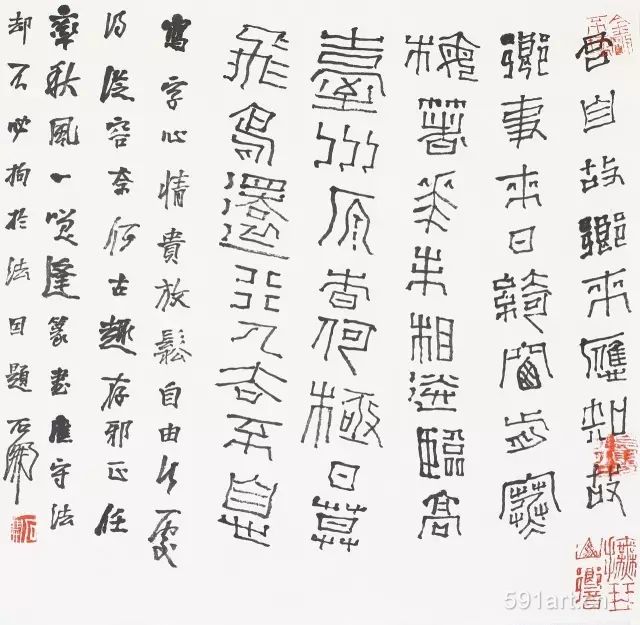 君自故鄉來應知故
鄉事來日綺窗前寒
梅著花未相送臨高
臺川原杳何極日暮
飛鳥還行人去不息
寫字心情貴放鬆自由處
得從容奈何古趣存邪正任
率秋風一咲逢篆書應守法
却不必拘於法因題石開
591art.cn